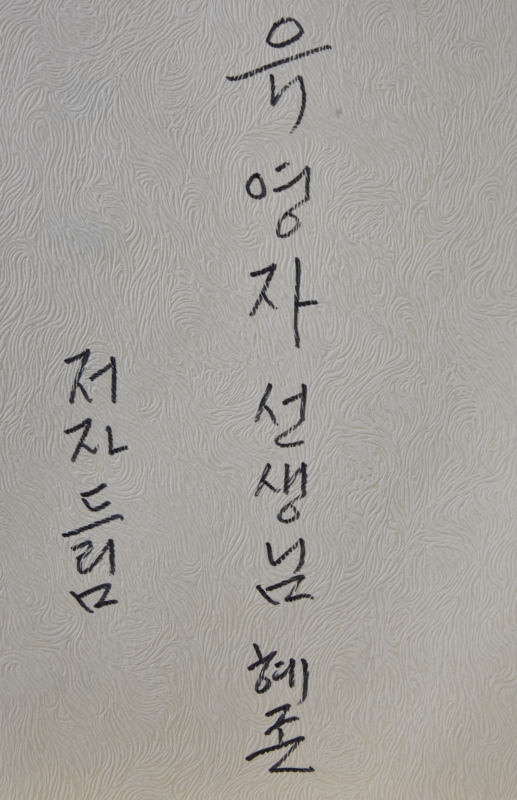 유영자 선생님 혜존
저자 드림